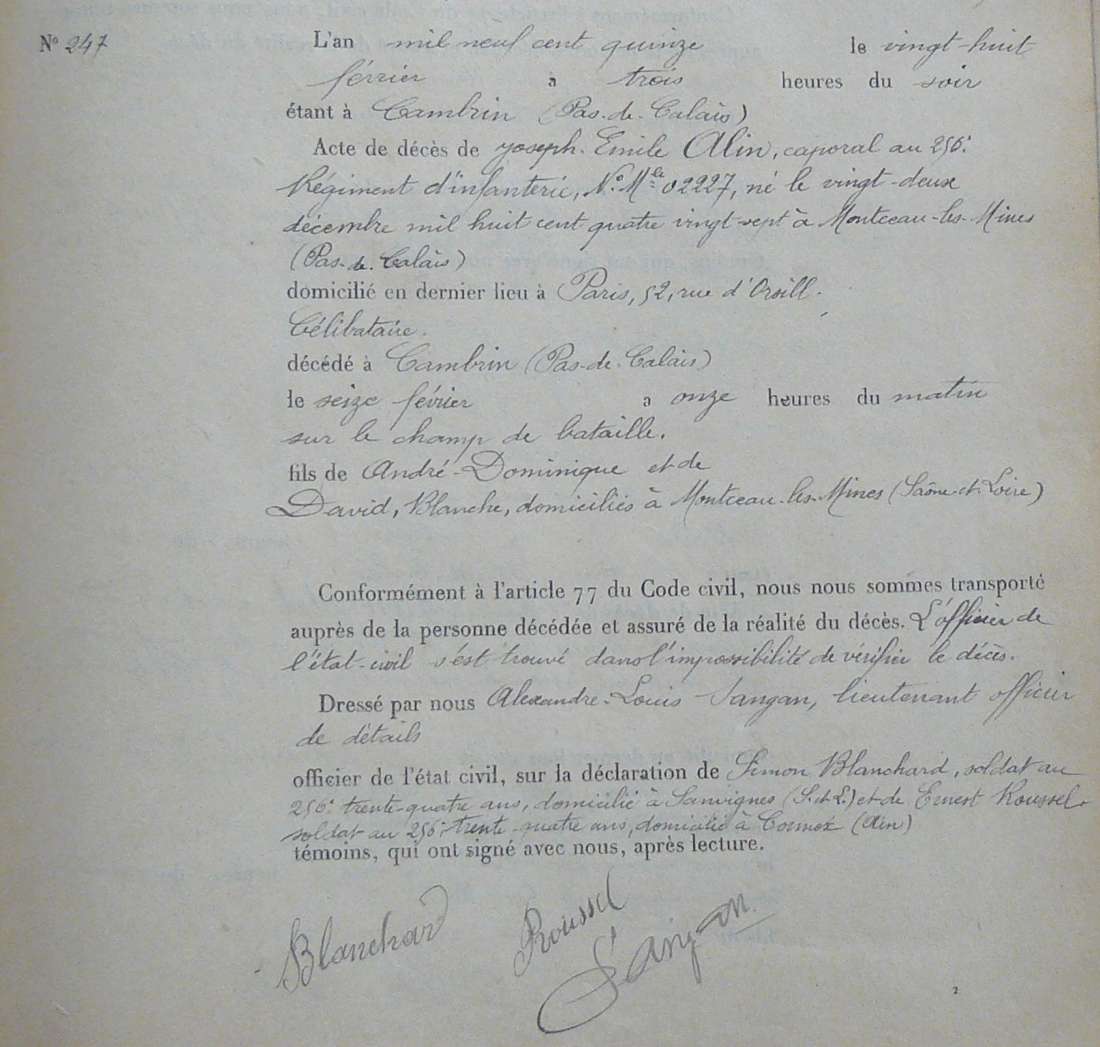 N° 247
L'an mil neuf cent quinze le vingt-huit
février à trois heures du soir
étant à Cambrin (Pas-de-Calais)
Acte de décès de Joseph-Emile Alin, caporal au 256e
Régiment d'infanterie, N° Mle 02227, né le vingt-deux
décembre mil huit cent quatre vingt-sept à Montceau-les-Mines
(Pas-de-Calais)
domicilié en dernier lieu à Paris, 52, rue d'
Célibataire.
décédé à Cambrin (Pas-de-Calais)
le seize février à onze heures du matin
sur le champ de bataille.
fils de André-Dominique et de
David, Blanche, domiciliés à Montceau-les-Mines (Saône-et-Loire)
Conformément à l'article 77 du Code civil, nous nous sommes transporté
auprès de la personne décédée et assuré de la réalité du décès. L'officier de
l'état-civil s'est trouvé dans l'impossibilité de vérifier le décès.
Dressé par nous Alexandre-Louis Sangan, lieutenant officier
de détails
officier de l'état civil, sur la déclaration de Simon Blanchard, soldat au
256e trente-quatre ans, domicilié à Sanvignes (S.et.L) et de Ernest Roussel
soldat au 256e trente-quatre ans, domicilié à (Ain)
témoins, qui ont signé avec nous, après lecture.
Blanchard Roussel
Sangan
2